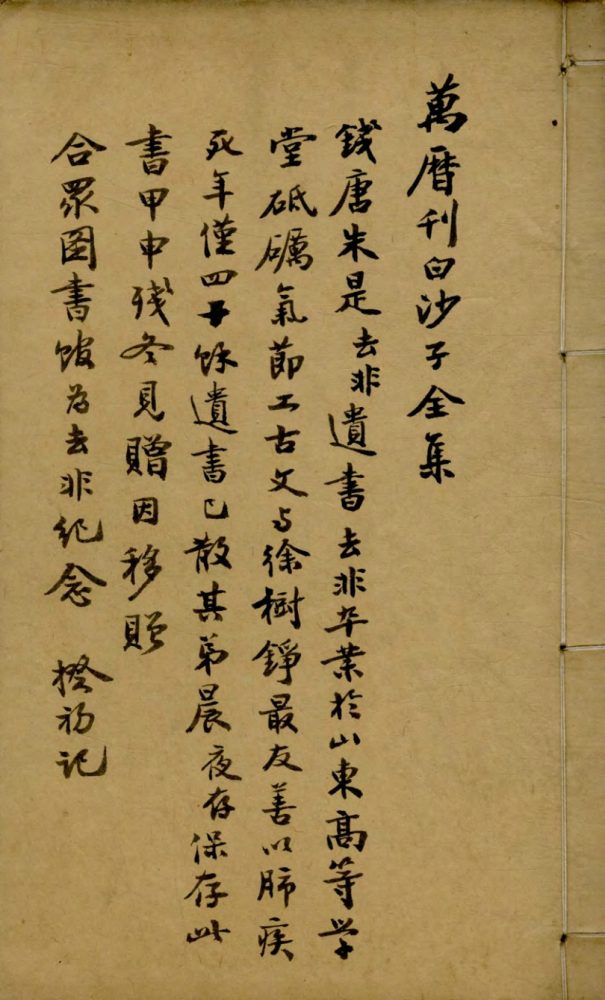 萬曆刊白沙子全集
錢唐朱是去非遺書去非卒業於山東高等学
堂砥礪氣節工古文与徐樹錚最友善以肺疾
死年僅四十餘遺書已散其弟晨夜存保存此
書甲申残冬見贈因移贈
合眾圖書館為去非紀念 揆初記